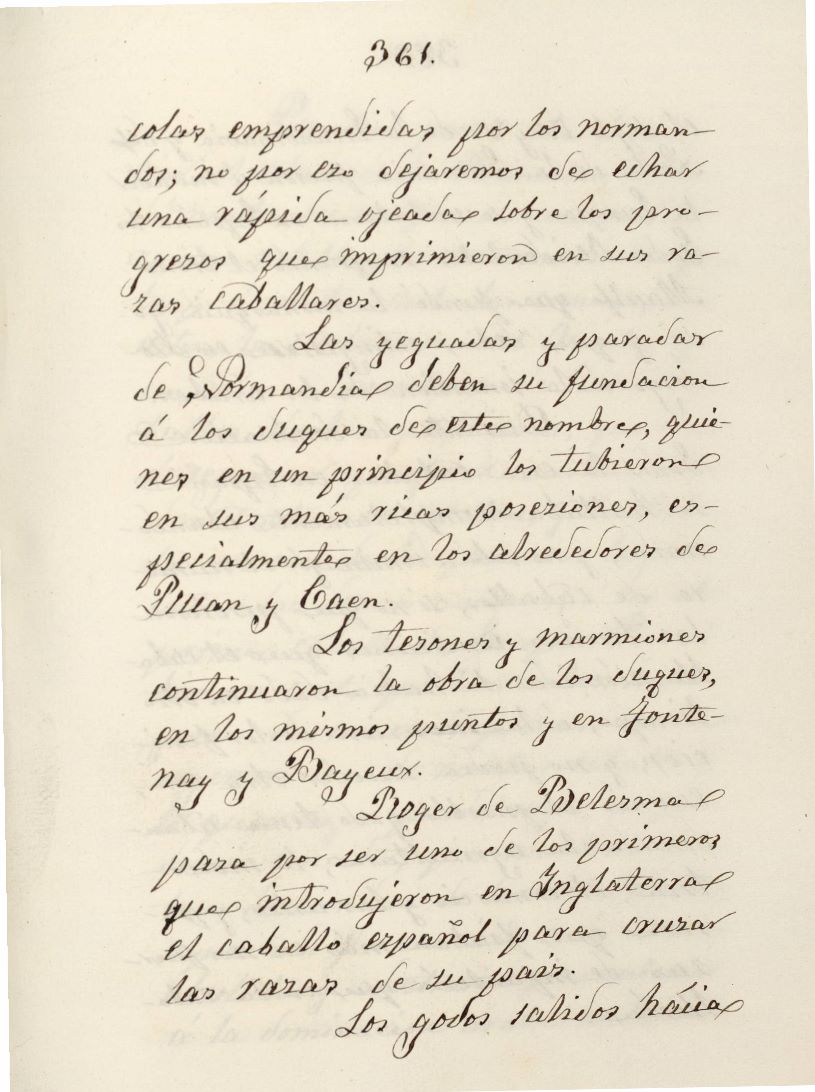 361.
colas emprendidas por los norman-
dos; no por ezo dejaremos de echar
una rápida ojeada sobre los pro-
grezos que imprimieron en sus ra-
zas caballares.
Las yeguadas y paradas
de Normandia deben su fundacion
á los duques de este nombre, quie-
nes en un principio los tubieron
en sus más ricas poseziones, es-
pecialmente en los alrededores de
Ruan y Caen.
Los tesones y marmiones
continuaron la obra de los duques,
en los mismos puntos y en Fonte-
nay y Bayeux.
Roger de Belesma
pasa por ser uno de los primeros
que introdujeron en Inglaterra
el caballo español para cruzar
las razas de su pais.
Los godos salidos hácia